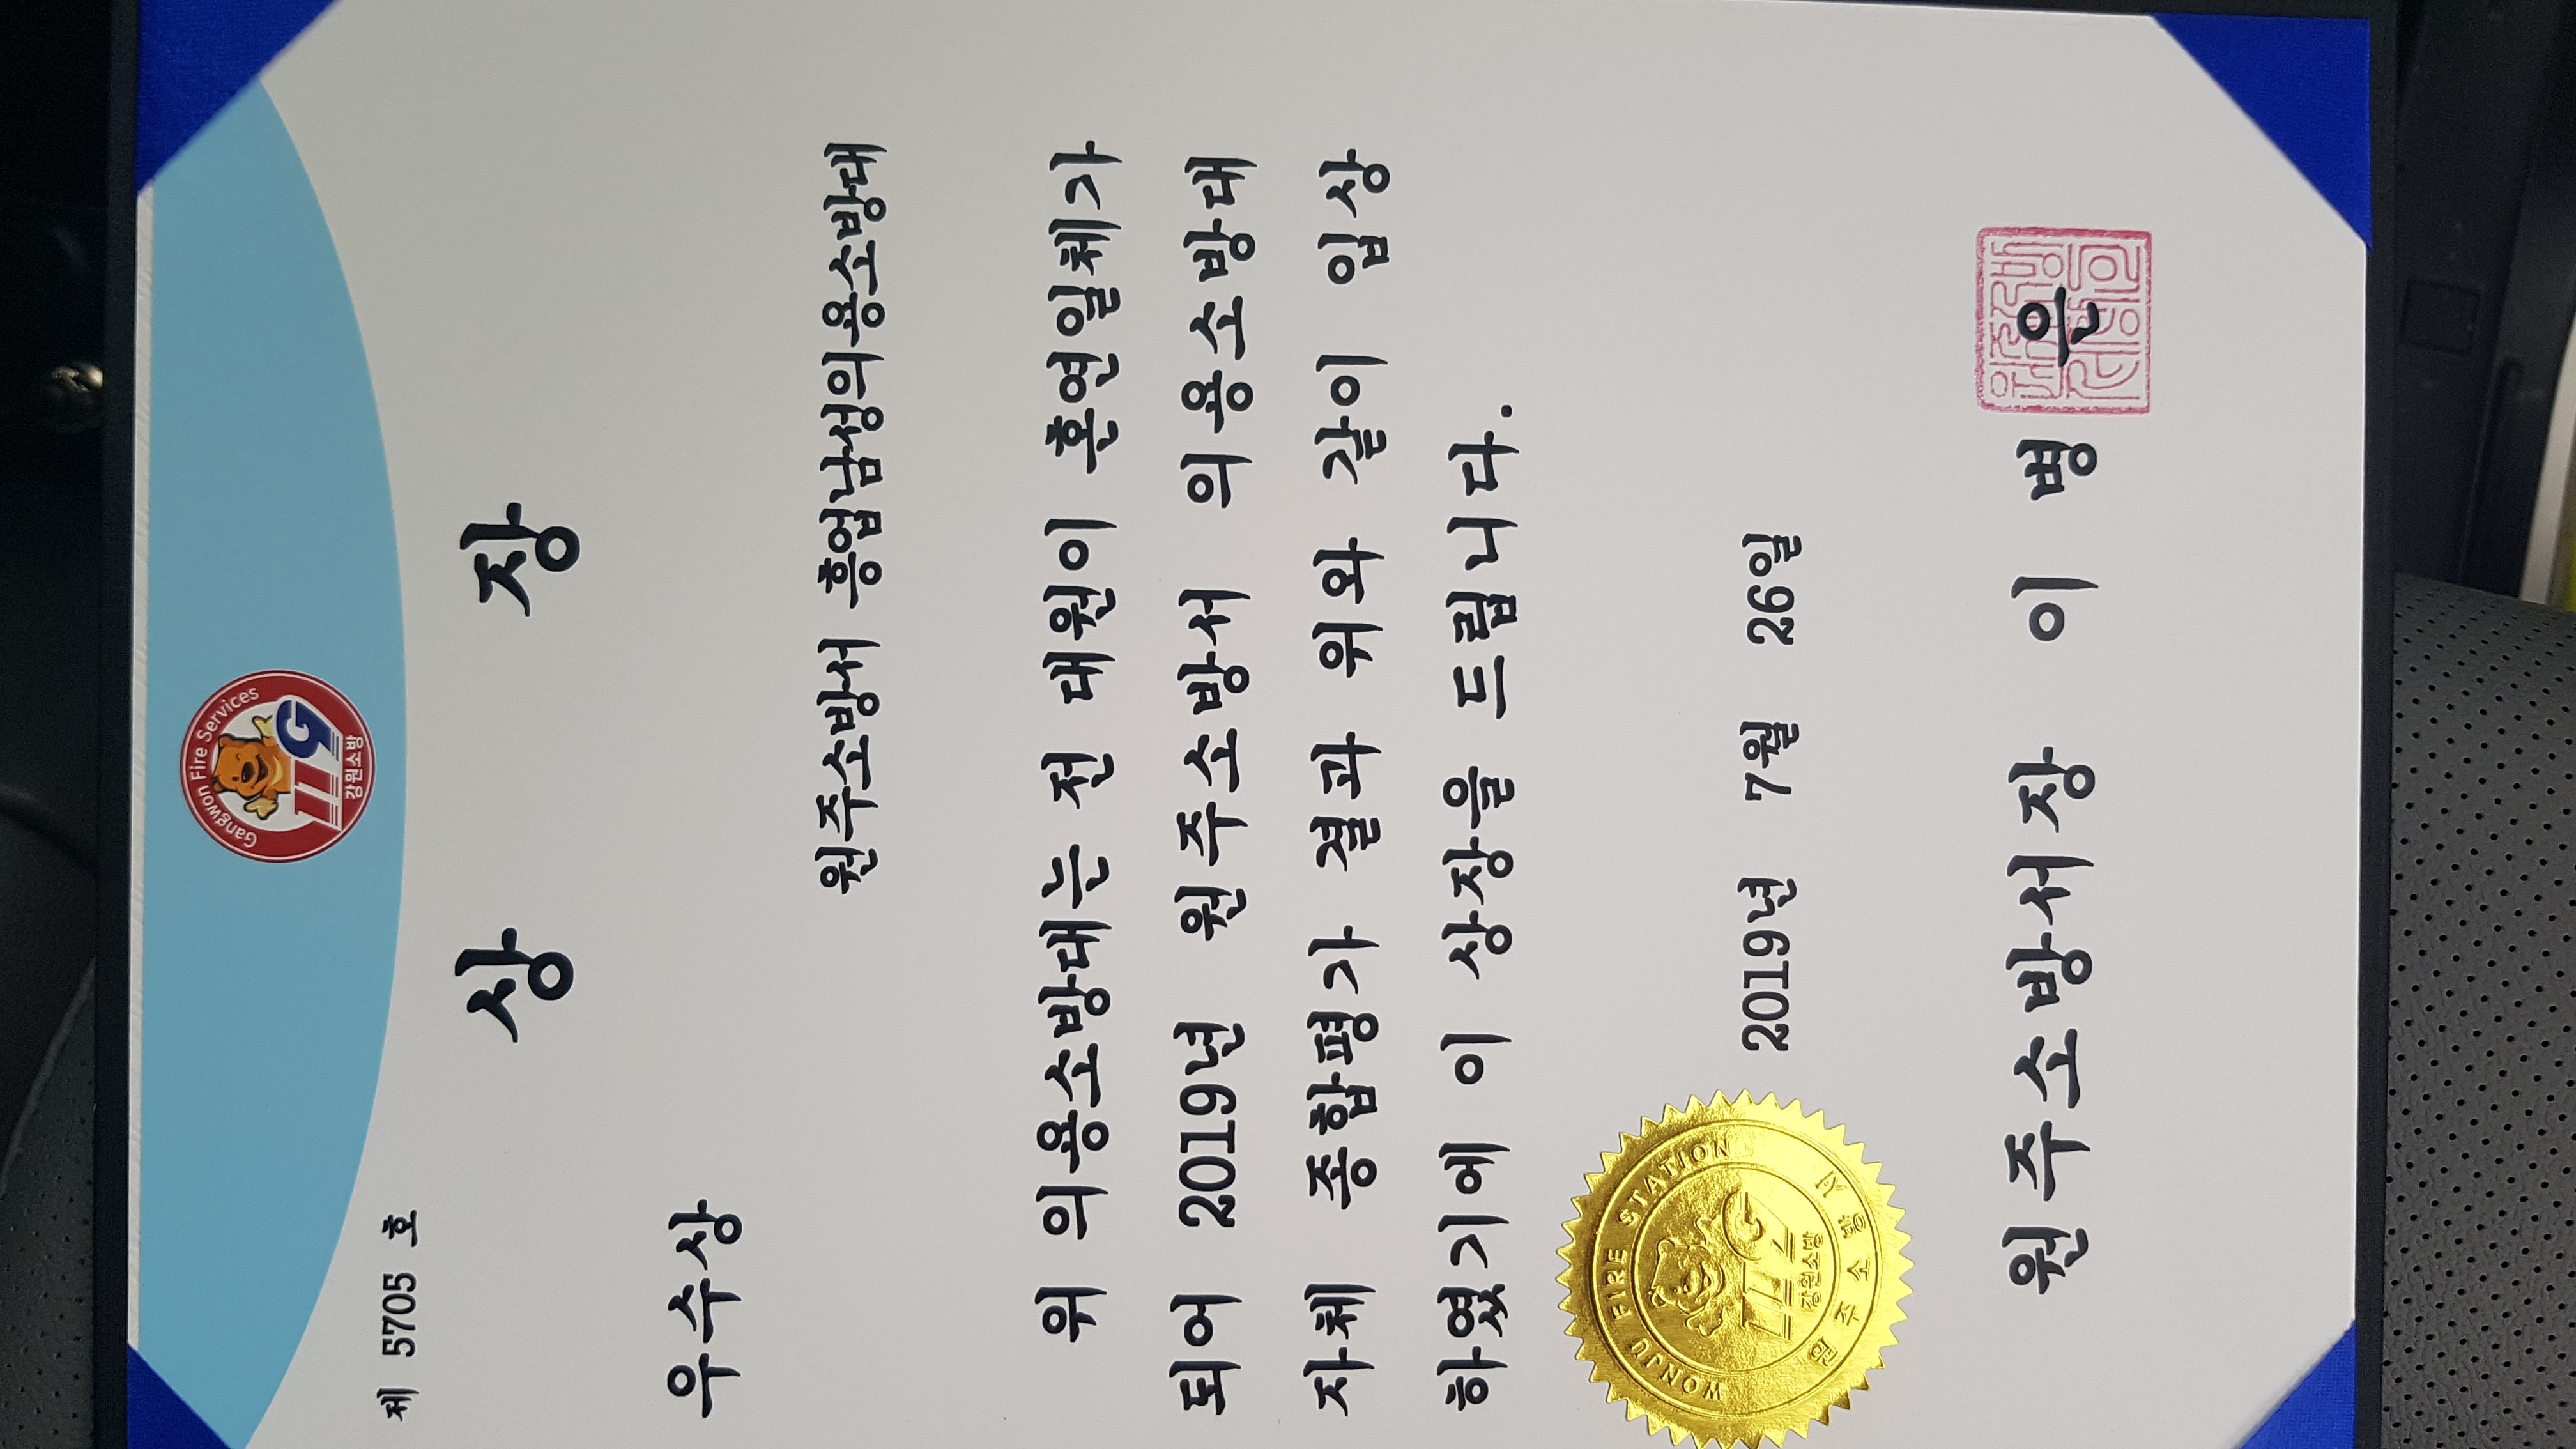 Gangwon Fire Services
119
강원소방
제 5705 호
상 장
우수상
원주소방서 흥업남성의용소방대
위 의용소방대는 전 대원이 혼연일체가
되어 2019년 원주소방서 의용소방대
자체 종합평가 결과 위와 같이 입상
하였기에 이 상장을 드립니다.
2019년 7월 26일
WONJU FIRE STATION
119
강원소방
원주소방서
원주소방서장 이 병 은